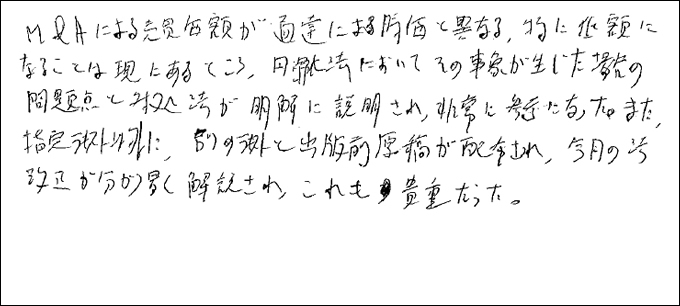 M&Aによる売買価額が通達による時価と異なる、特に低額に
なることは現にあるところ、円滑化法においてその事象が生じた場合の
問題点と対処法が明解に説明され、非常に参考になった。また、
指定テキスト以外に、別のテキストと出版前原稿が配布され、今月の法
改正が分かり易く解説され、これも貴重だった。